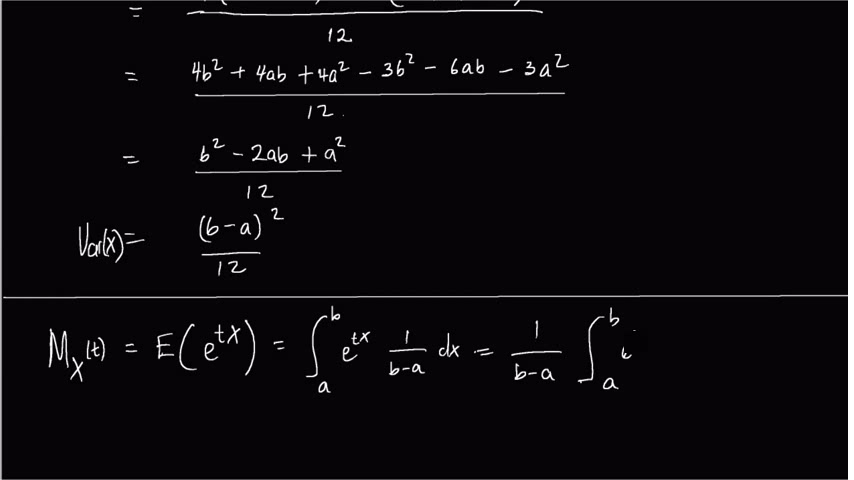 = 12
= 4b² + 4ab + 4a² − 3b² − 6ab − 3a² / 12
= b² − 2ab + a² / 12
Var(x) = (b−a)² / 12
M_X(t) = E(e^{tX}) = ∫_a^b e^{tx} 1/(b−a) dx = 1/(b−a) ∫_a^b